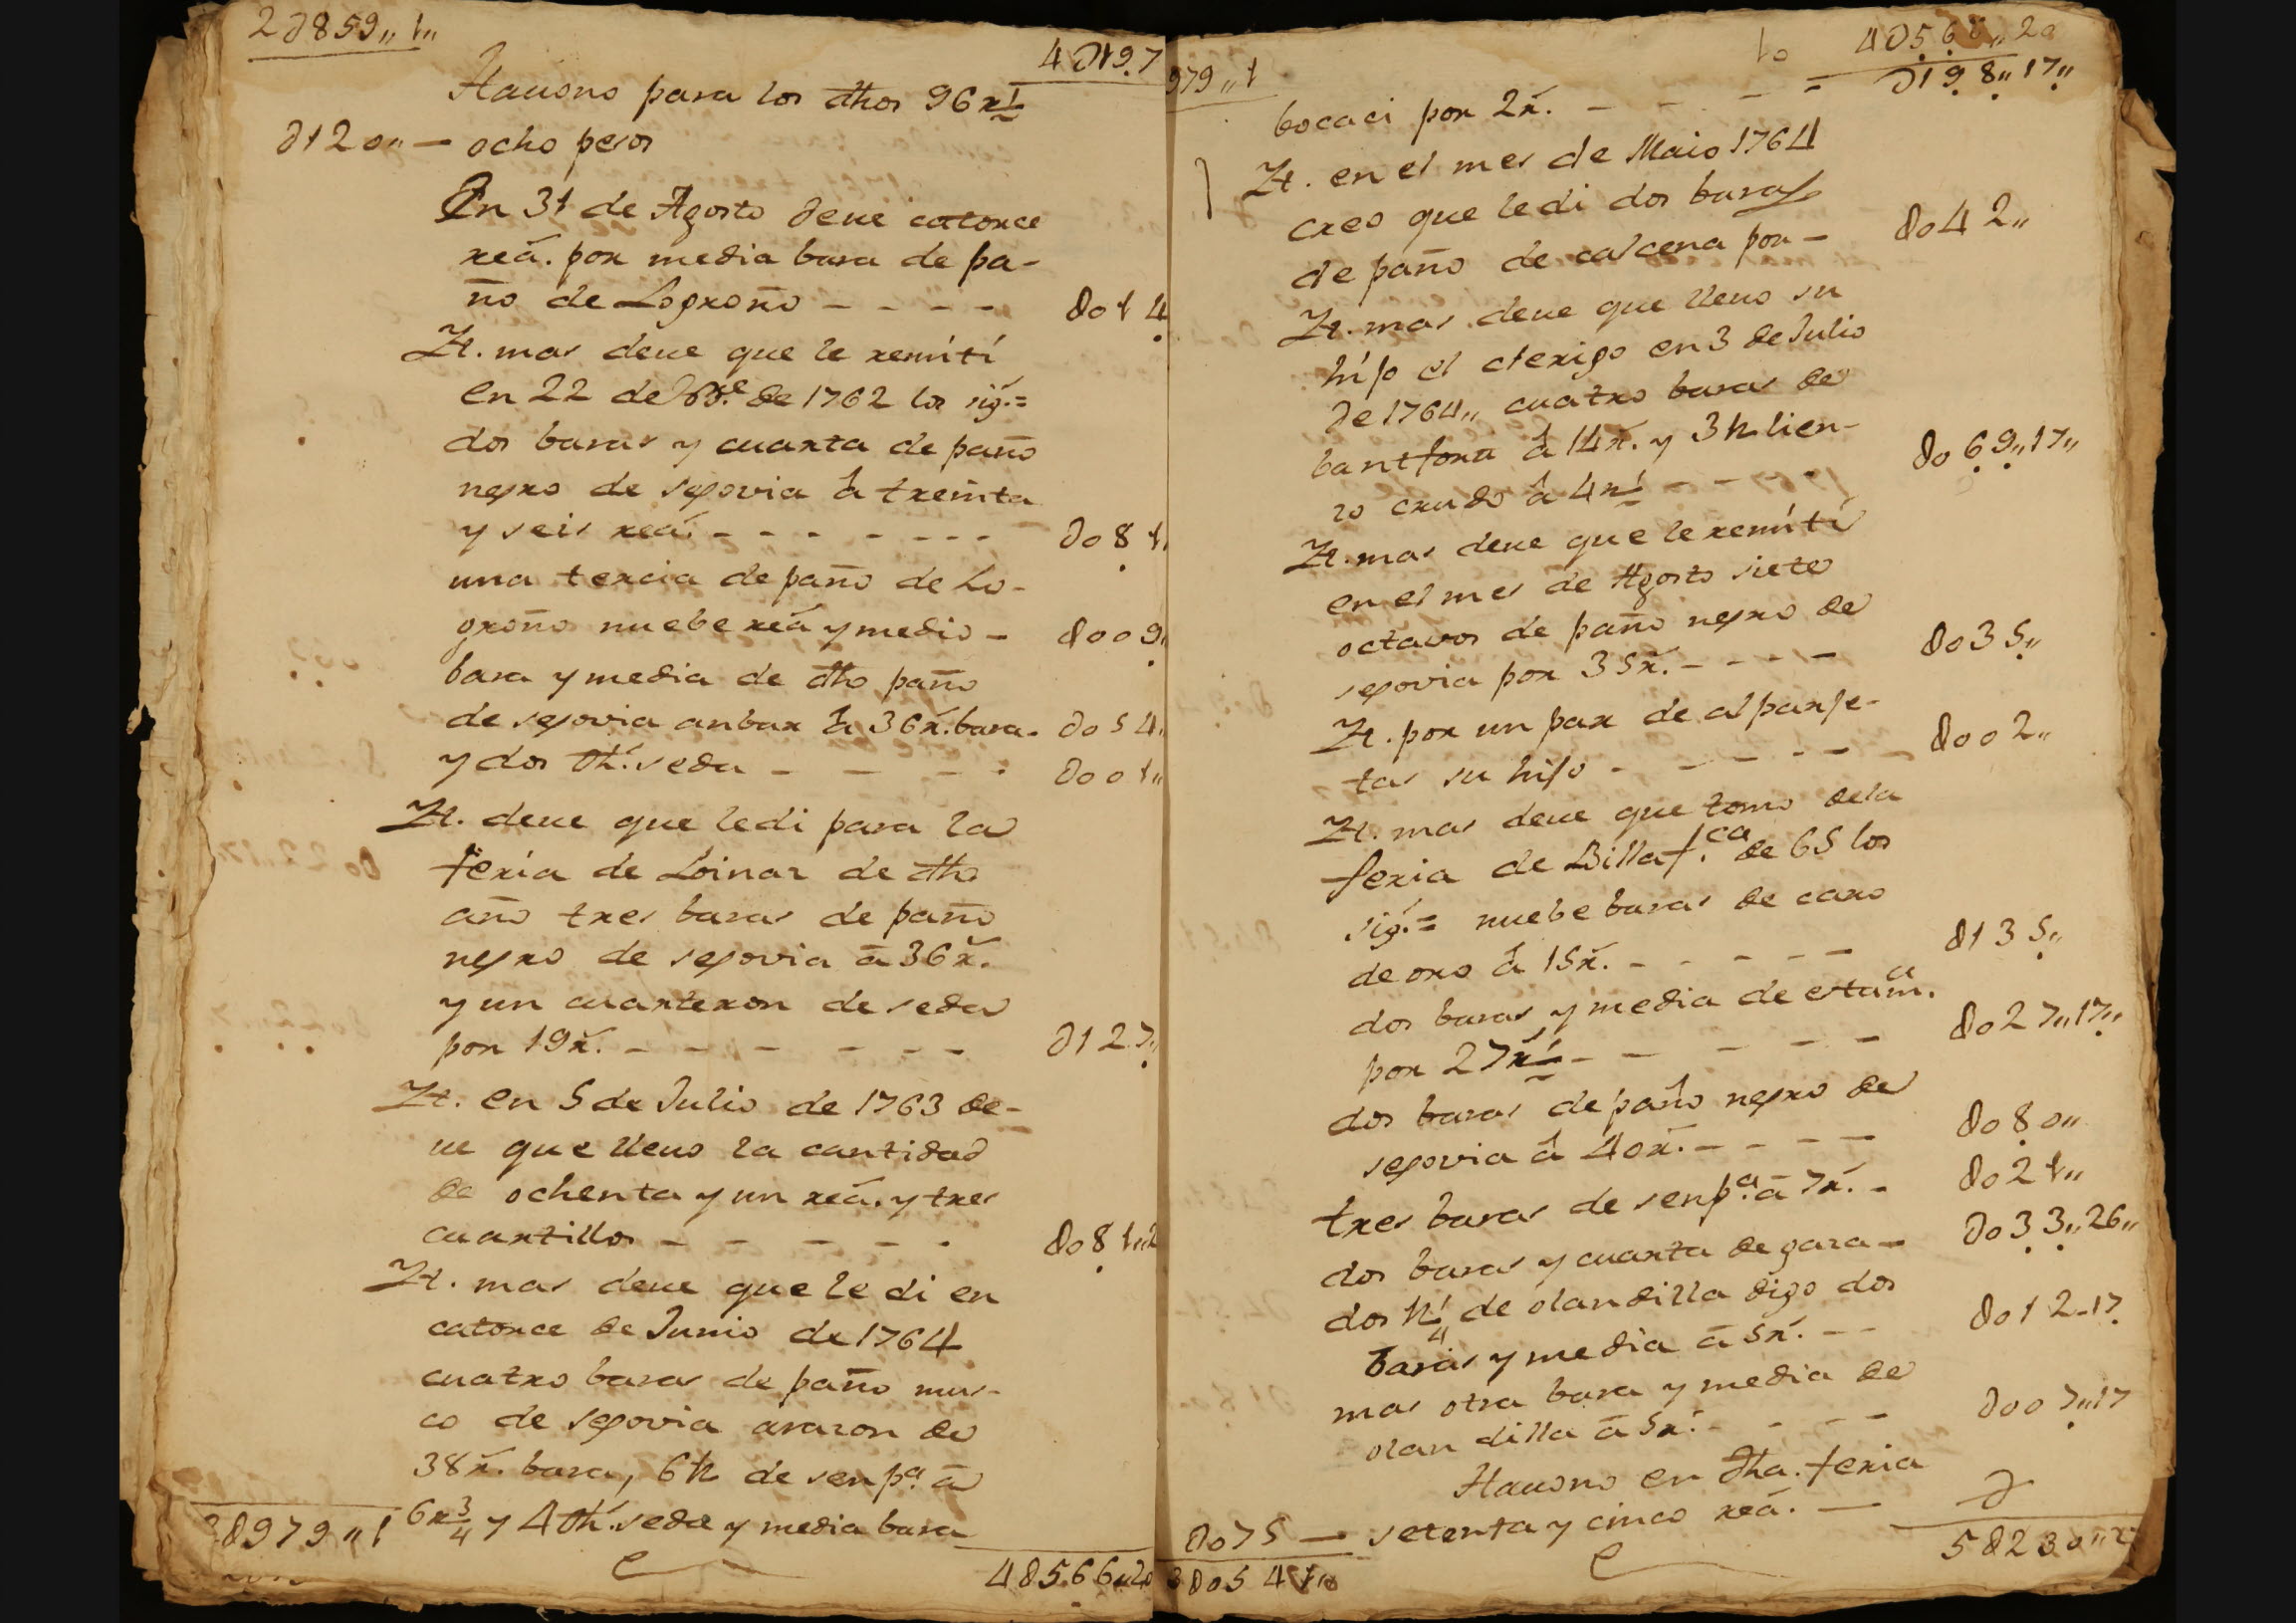 2∂859,, 1,,
4∂197
Hauono para los dhos 96 r.s
∂120,, — ocho pesos
En 31 de Agosto deue catorce
reâ. por media bara de pa-
ño de Logroño - - - - ∂014
Yt. mas deue que le remiti
en 22 de 1762 los sig.=
dos baras y cuarta de paño
negro de segovia â treinta
y seis reâ. - - - - - - - ∂081,,
una tercia de paño de Lo-
groño nuebe reâ y medio - ∂009,,
bara y media de dho paño
de segovia anbar â 36 r. bara. ∂054,,
y dos seda - - - - ∂001,,
Yt. deue que le di para la
feria de Loinaz de dho
año tres baras de paño
negro de segovia â 36 r.
y un cuarteron de seda
por 19 r. - - - - - - - ∂127,,
Yt. en 5 de Julio de 1763 de-
ue que lleuo la cantidad
de ochenta y un reâ. y tres
cuartillos - - - - - - ∂081,,2
Yt. mas deue que le di en
catorce de Junio de 1764
cuatro baras de paño mus-
co de segovia arazon de
38 r. bara, 6 h de senp.a â
6 r 3/4 y 4 seda y media bara
2∂979,, 1
4∂566,,20
979,, 1
4∂566,,20
bocaci por 2 r. - - - - = ∂198,,17,,
Yt. en el mes de Maio 1764
creo que le di dos baras
de paño de calcena por - ∂042,,
Yt. mas deue que lleuo su
hijo el clerigo en 3 de Julio
de 1764,, cuatro baras de
bantfora â 14 r. y 3 h lien-
zo crudo â 4 r.s - - - - ∂069,,17,,
Yt. mas deue que le remiti
en el mes de Agosto siete
octavos de paño negro de
segovia por 35 r. - - - - ∂035,,
Yt. por un par de alparje-
tas su hijo - - - - - - ∂002,,
Yt. mas deue que tomo de la
feria de Billaf.ca de 65 los
sig.= nuebe baras de caro
de oro â 15 r. - - - - - ∂135,,
dos baras y media de estam.a
por 27 r.s - - - - - - ∂027,,17,,
dos baras de paño negro de
segovia â 40 r. - - - - ∂080,,
tres baras de senp.a â 7 r. - ∂021,,
dos baras y cuarta de gara - ∂033,,26,,
dos h de olandilla digo dos
baras y media â 5 r. - - ∂012-17
mas otra bara y media de
olandilla â 5 r. - - - - ∂007,,17
Hauono en dha. feria
∂075 — setenta y cinco reâ. — ∂
3∂054
5∂230,,